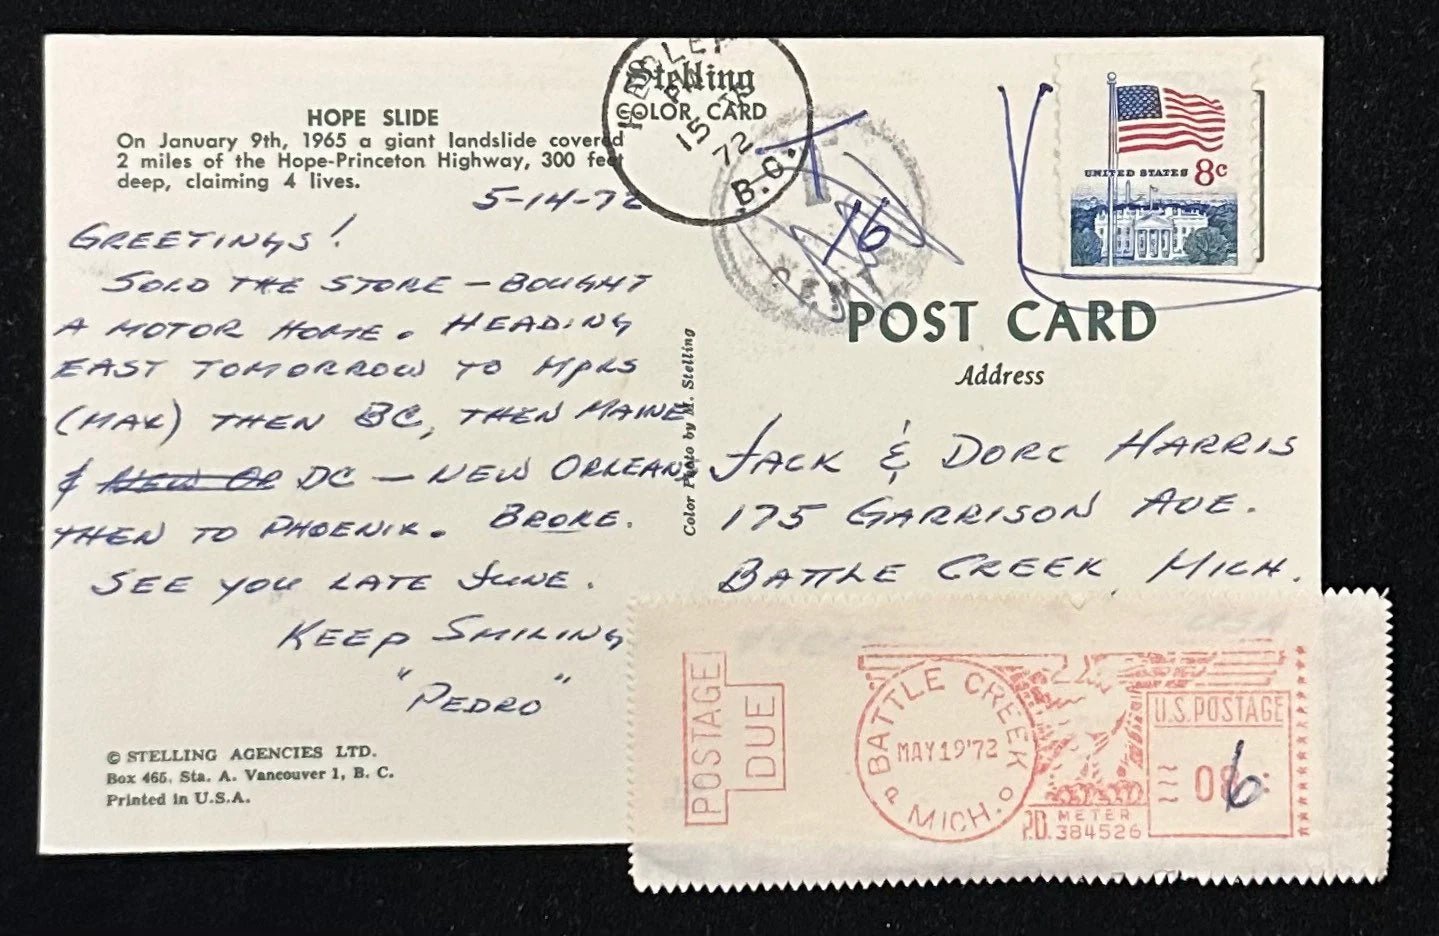 HOPE SLIDE
On January 9th, 1965 a giant landslide covered
2 miles of the Hope-Princeton Highway, 300 feet
deep, claiming 4 lives.
5-14-72
GREETINGS!
SOLD THE STORE — BOUGHT
A MOTOR HOME. HEADING
EAST TOMORROW TO MPLS
(MAX) THEN BC, THEN MAINE
& NEW OR DC — NEW ORLEANS
THEN TO PHOENIX. BROKE.
SEE YOU LATE JUNE.
KEEP SMILING
"PEDRO"
© STELLING AGENCIES LTD.
Box 465, Sta. A. Vancouver 1, B. C.
Printed in U.S.A.
Color Photo by M. Stelling
Stelling
COLOR CARD
PM
15
72
B.C.
T
16
UNITED STATES 8c
POST CARD
Address
JACK & DORC HARRIS
175 GARRISON AVE.
BATTLE CREEK, MICH.
USA
POSTAGE
DUE
BATTLE CREEK
MAY 19'72
MICH.
P O
U.S. POSTAGE
6
P.D. METER
384526